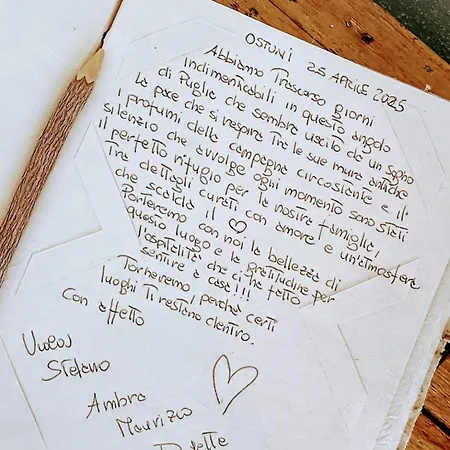 OSTUNI 25 APRILE 2025
Abbiamo Trascorso giorni
indimenticabili in questo angolo
di Puglia che sembra uscito da un sogno
la pace che si respira Tra le sue mura antiche
i profumi della campagna circostante e il
silenzio che avvolge ogni momento sono stati
il perfetto rifugio per la nostra famiglia,
Tra dettagli curati con amore e un'atmosfera
che scalda il ♡
Porteremo con noi la bellezza di
questo luogo e la gratitudine per
l'ospitalità che ci ha fatto
sentire a casa!!!
Torneremo, perché certi
luoghi Ti restano dentro.
Con affetto
Stefano
Ambra
Maurizio